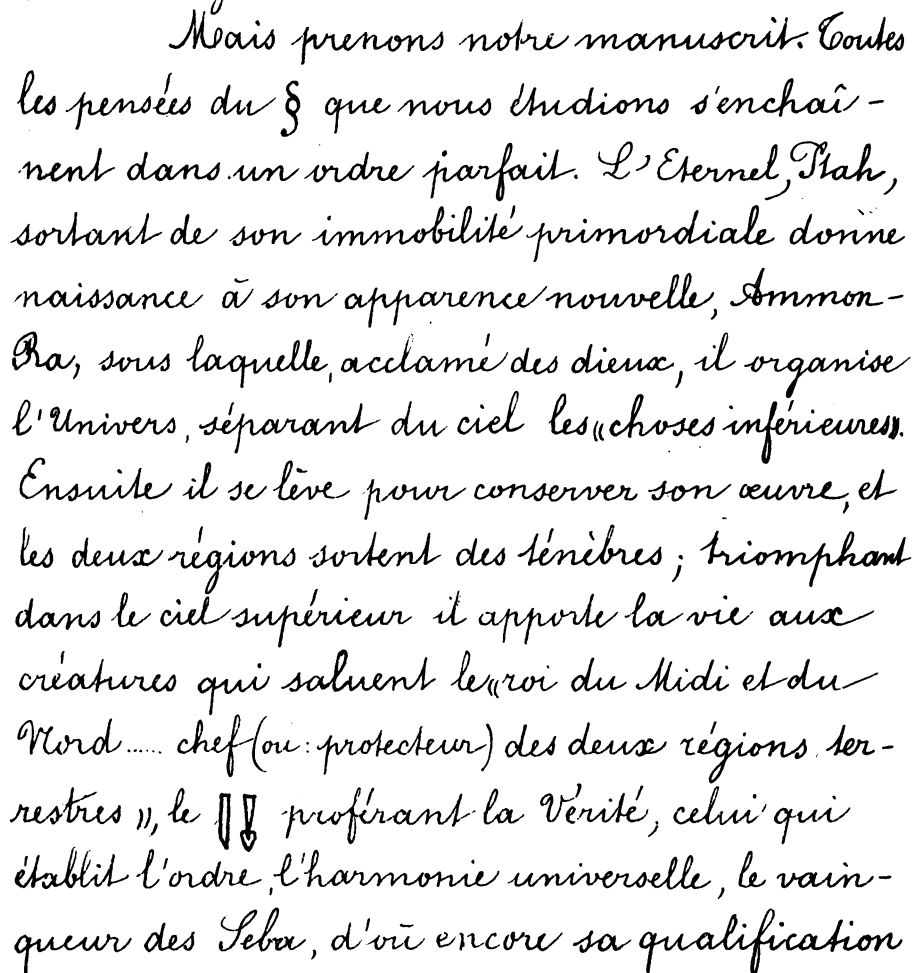 Mais prenons notre manuscrit. Toutes
les pensées du § que nous étudions s'enchaî-
nent dans un ordre parfait. L'Eternel, Ptah,
sortant de son immobilité primordiale donne
naissance à son apparence nouvelle, Ammon-
Ra, sous laquelle, acclamé des dieux, il organise
l'Univers, séparant du ciel les «choses inférieures».
Ensuite il se lève pour conserver son œuvre, et
les deux régions sortent des ténèbres; triomphant
dans le ciel supérieur il apporte la vie aux
créatures qui saluent le «roi du Midi et du
Nord...... chef (ou: protecteur) des deux régions ter-
restres», le proférant la Vérité, celui qui
établit l'ordre, l'harmonie universelle, le vain-
queur des Seba, d'où encore sa qualification